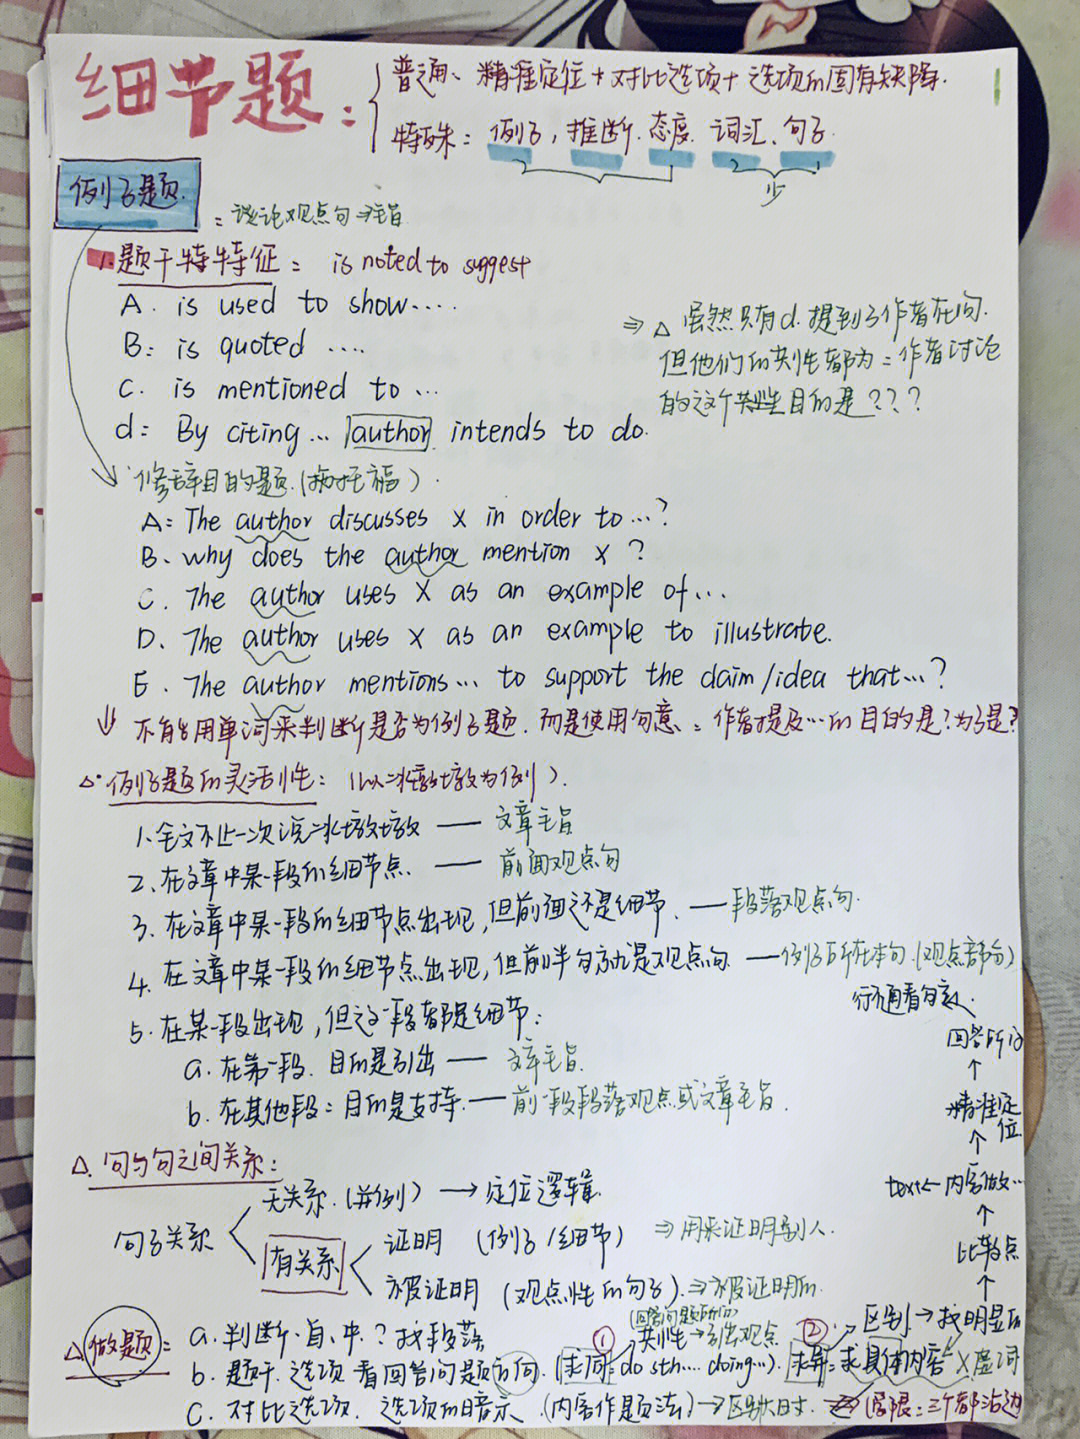 细节题：
普通、精准定位+对比选项+选项的固有缺陷.
特殊：例子，推断.态度.词汇、句子.
少
例子题.
：谈论观点句⇒主旨
1.题干特特征： is noted to suggest
A. is used to show....
B: is quoted ....
C. is mentioned to ...
d: By citing ... author intends to do.
⇒△ 虽然只有d.提到了作者在问.
但他们的共性都为：作者讨论
的这个共性目的是？？？
修辞目的题.(托福).
A: The author discusses x in order to ...?
B. why does the author mention x ?
C. The author uses x as an example of ...
D. The author uses x as an example to illustrate.
E. The author mentions ... to support the claim/idea that...?
⇓ 不能用单词来判断是否为例子题.而是使用句意：作者提及…的目的是?为了是?
△·例子题的灵活性：(以冰墩墩为例).
1.全文不止一次说冰墩墩 —— 文章主旨
2.在文章中某一段的细节点. —— 前面观点句
3.在文章中某一段的细节点出现,但前面还是细节. —— 段落观点句.
4.在文章中某一段的细节点出现,但前半句就是观点句 —— 例子所在本句.(观点部分)
行不通看句意.
5.在某一段出现,但这一段都是细节：
a.在第一段.目的是引出 —— 文章主旨.
b.在其他段：目的是支持. —— 前一段段落观点或文章主旨.
回答所问
↑
精准定位
↑
text← 内容做…
↑
比较点
↑
△.句与句之间关系：
句子关系
无关系.(并例) → 定位逻辑.
有关系
证明 (例子/细节) ⇒用来证明别人.
被证明 (观点性的句子).⇒被证明的.
△做题：
a.判断.首.中.？找段落
b.题干.选项看回答问题方向.(求同=do sth.... doing...).求异=求具体内容 x虚词
(回答问题所问)
① 共性→引出观点
② 区别→找明显的
C.对比选项.选项的暗示.(内容作题法)→区别大时. (局限：三个都沾边